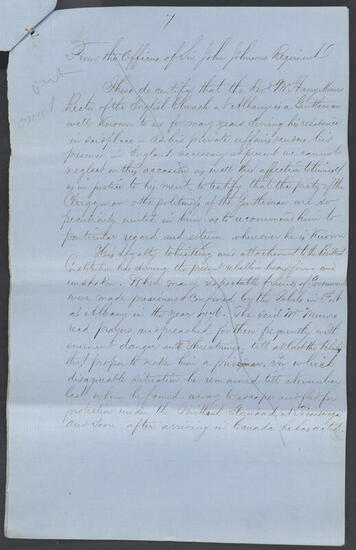 7
From the Officers of Sir John Johnsons Regiment
out
These do certify that the Revd Mr Harry Munro
Rector of the English Church at Albany is a Gentleman
well known to us for many years during his residence
in as his private affairs his
presence in England necessary at present we cannot
neglect on this occasion as well thro affection to himself
as in justice to his merit, to testify that the piety of the
Clergyman & the politeness of the Gentleman are so
peculiarly united in him, as to recommend him to
particular regard and esteem wherever he is known
His loyalty to his King and attachment to the British
Constitution has during the present rebellion been firm and
unshaken. When many respectable friends of Government
were made prisoners & confined by the Rebels in Fort
at Albany in the year 1776. The said Mr Munro
read prayers, and preached to them frequently with
eminent danger and threatnings, till at last the Rebels
tho't proper to make him a prisoner. In which
disagreeable situation he remained till November
last when he found a way to escape and fled for
protection under the Brittish Standard, at Ticonderoga
and soon after arriving in Canada he has acted